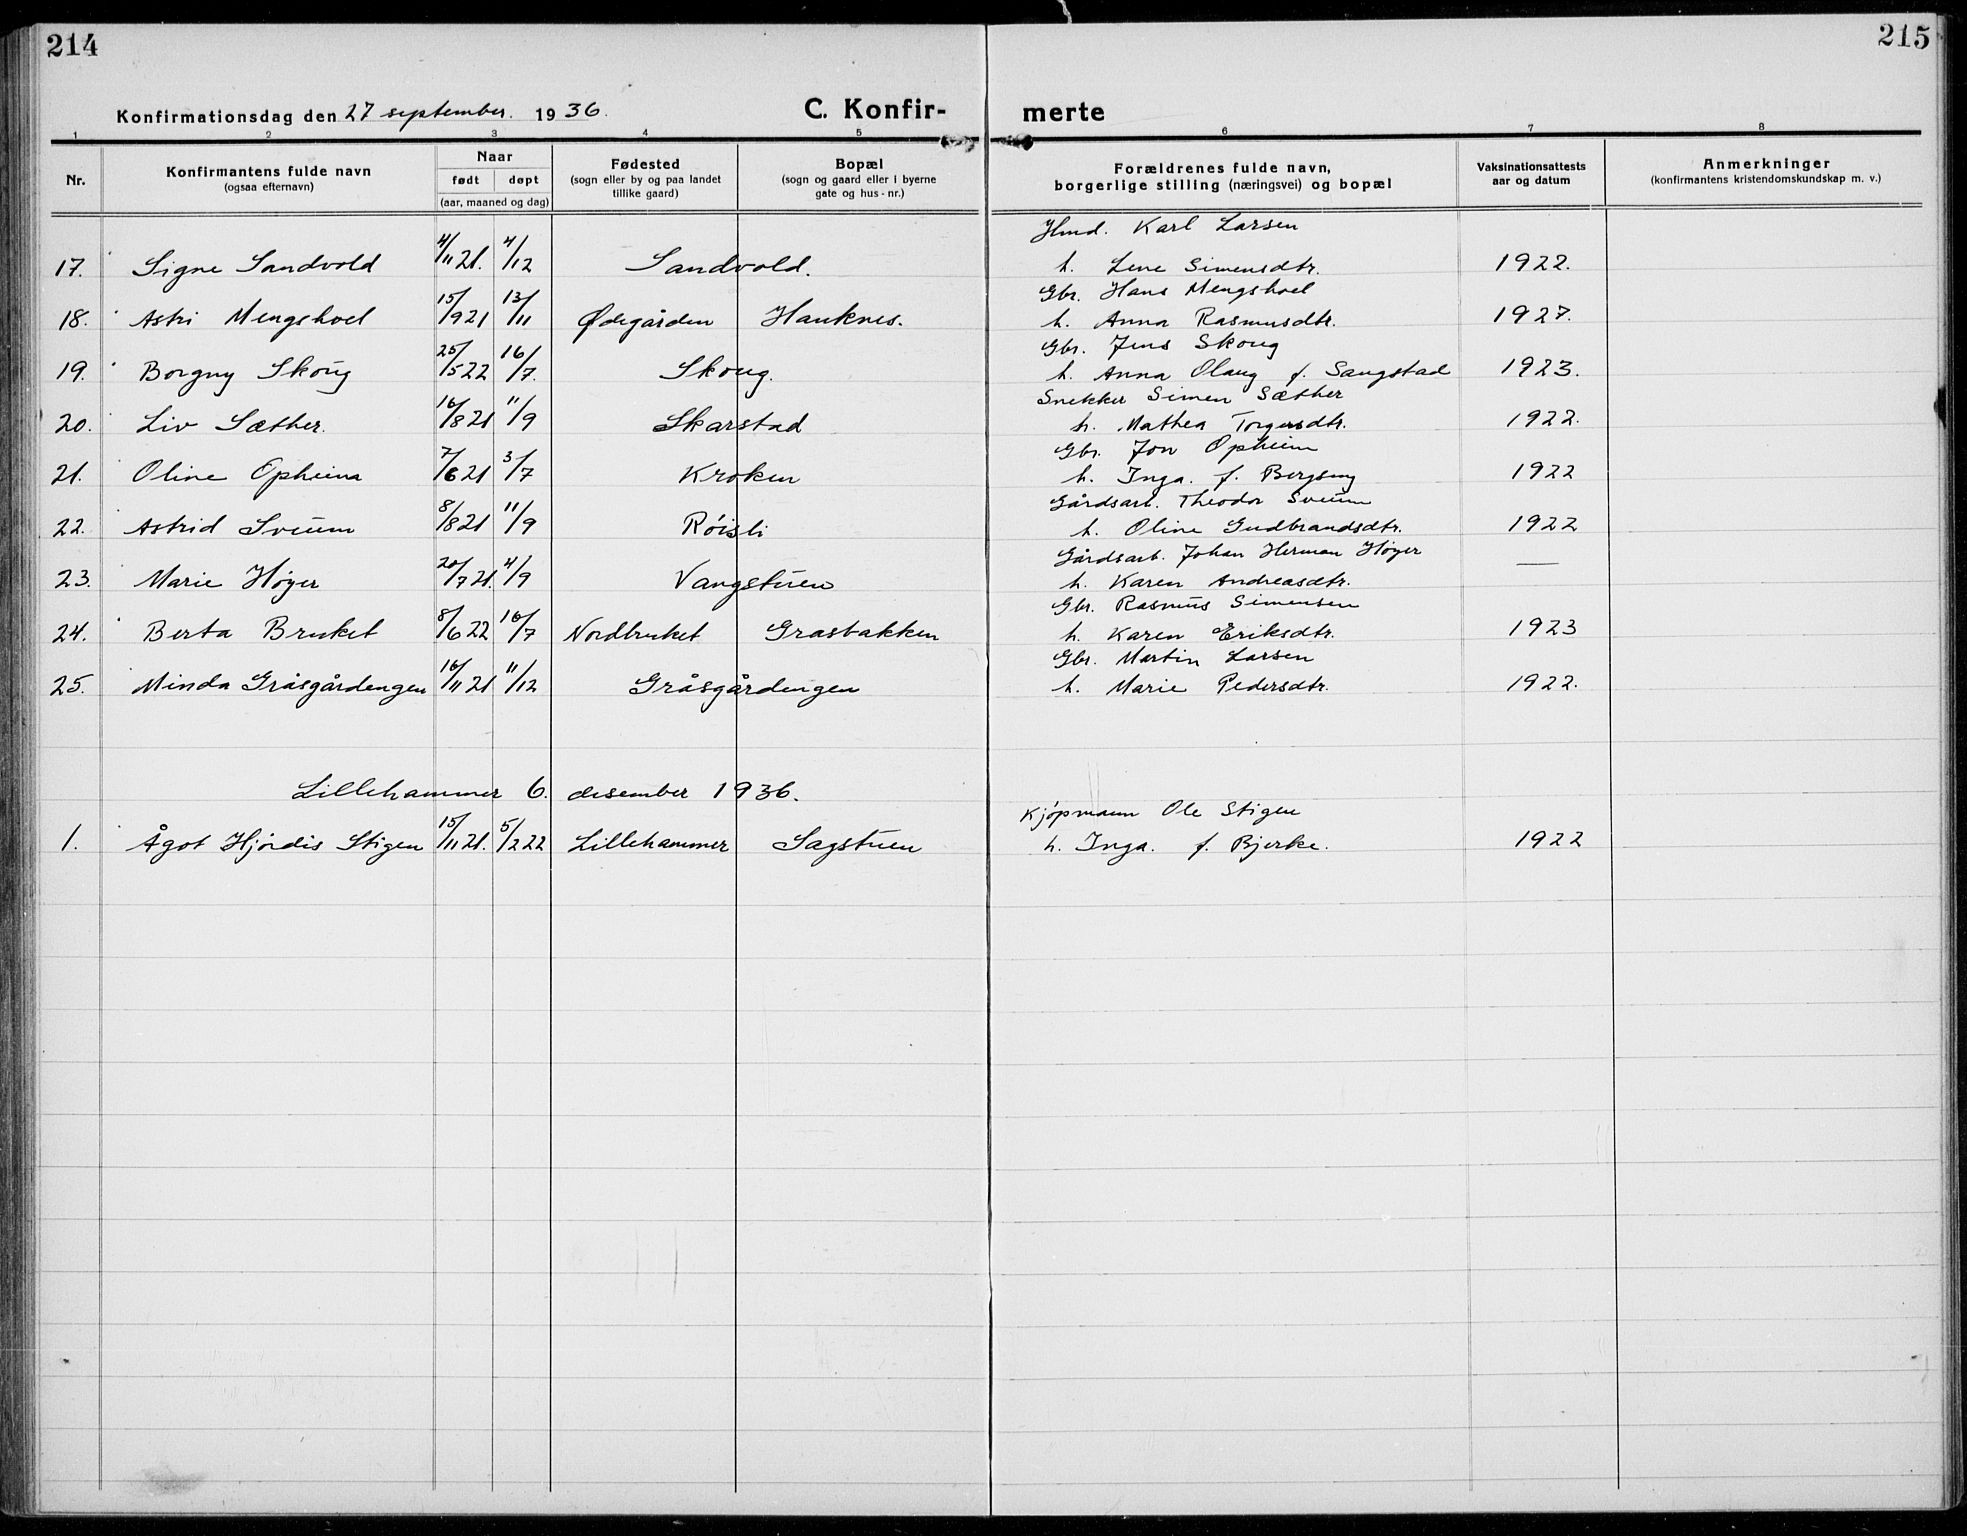 214
215
Konfirmationsdag den 27 september. 1936.
C. Konfir-
merte
1 2 3 4 5 6 7 8
Nr.
Konfirmantens fulde navn
(ogsaa efternavn)
Naar
født døpt
(aar, maaned og dag)
Fødested
(sogn eller by og paa landet
tillike gaard)
Bopæl
(sogn og gaard eller i byerne
gate og hus-nr.)
Forældrenes fulde navn,
borgerlige stilling (næringsvei) og bopæl
Vaksinationsattests
aar og datum
Anmerkninger
(konfirmantens kristendomskundskap m. v.)
Hmd. Karl Larsen
17. Signe Sandvold 4/11 21. 4/12 Sandvold. h. Lene Simensdtr. 1922.
Gbr. Hans Mengshoel
18. Astri Mengshoel 15/9 21 13/11 Ødegården Hauknes. h. Anna Rasmusdtr. 1927.
Gbr. Jens Skoug
19. Borgny Skoug 25/5 22 16/7. Skoug. h. Anna Olaug f. Saugstad 1923.
Snekker Simen Sæther
20. Liv Sæther. 16/8 21 11/9 Skarstad h. Mathea Torgersdtr. 1922.
Gbr. Jon Opheim
21. Oline Opheim 7/6 21 3/7 Kroken h. Inga. f. Bergseng 1922
Gårdsarb. Theodor Sveum
22. Astrid Sveum 8/8 21 11/9 Røisli h. Oline Gudbrandsdtr. 1922
Gårdsarb. Johan Herman Høyer
23. Marie Høyer 20/7 21. 4/9 Vangstuen h. Karen Andreasdtr. —
Gbr. Rasmus Simensen
24. Berta Bruket 8/6 22 16/7 Nordbruket Grasbakken h. Karen Eriksdtr. 1923
Gbr. Martin Larsen
25. Minda Gråsgårdengen 16/11 21 11/12 Gråsgårdengen h. Marie Pedersdtr. 1922.
Lillehammer 6. desember 1936.
Kjøpmann Ole Stigen
1. Ågot Hjørdis Stigen 15/11 21. 5/2 22 Lillehammer Sagstuen h. Inga. f. Bjerke. 1922